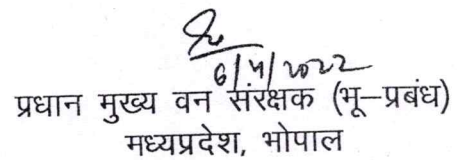 6/4/2022
प्रधान मुख्य वन संरक्षक (भू–प्रबंध)
मध्यप्रदेश, भोपाल